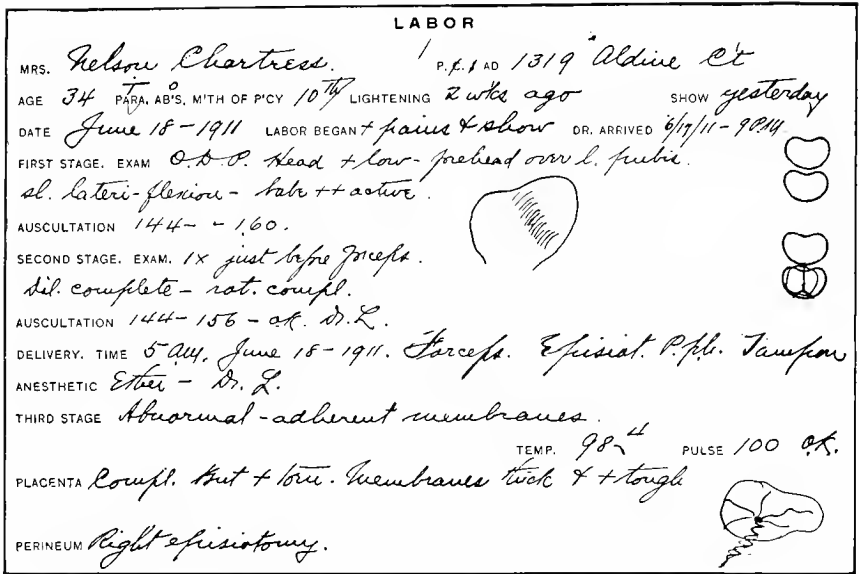 LABOR
MRS. Nelson Chartress. P.C. & AD 1319 Aldine Ct
AGE 34 PARA. I AB'S. 0 M'TH OF P'CY 10TH LIGHTENING 2 wks ago SHOW yesterday
DATE June 18-1911 LABOR BEGAN + pains & show DR. ARRIVED 6/17/11-9 P.M.
FIRST STAGE. EXAM O.D.P. Head + low- forehead over l. pubis.
sl. lateri-flexion- babe ++ active.
AUSCULTATION 144- - 160.
SECOND STAGE. EXAM. 1x just before forceps.
Dil. complete- rot. compl.
AUSCULTATION 144-156-ok. Dr. L.
DELIVERY. TIME 5 AM, June 18-1911. Forceps. Episiot. P.ph. Tampon
ANESTHETIC Ether - Dr. L.
THIRD STAGE Abnormal-adherent membranes.
TEMP. 98-4 PULSE 100 ok.
PLACENTA Compl. But + torn. Membranes thick & + tough
PERINEUM Right episiotomy.